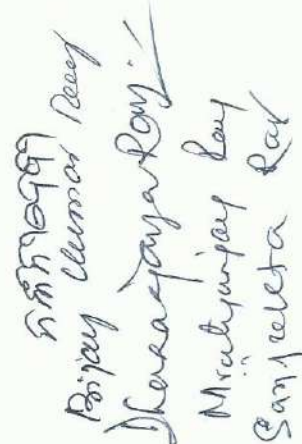 Bijay Kumar Ray
Dhananjaya Ray
Mrutyunjay Ray
Sanjukta Ray